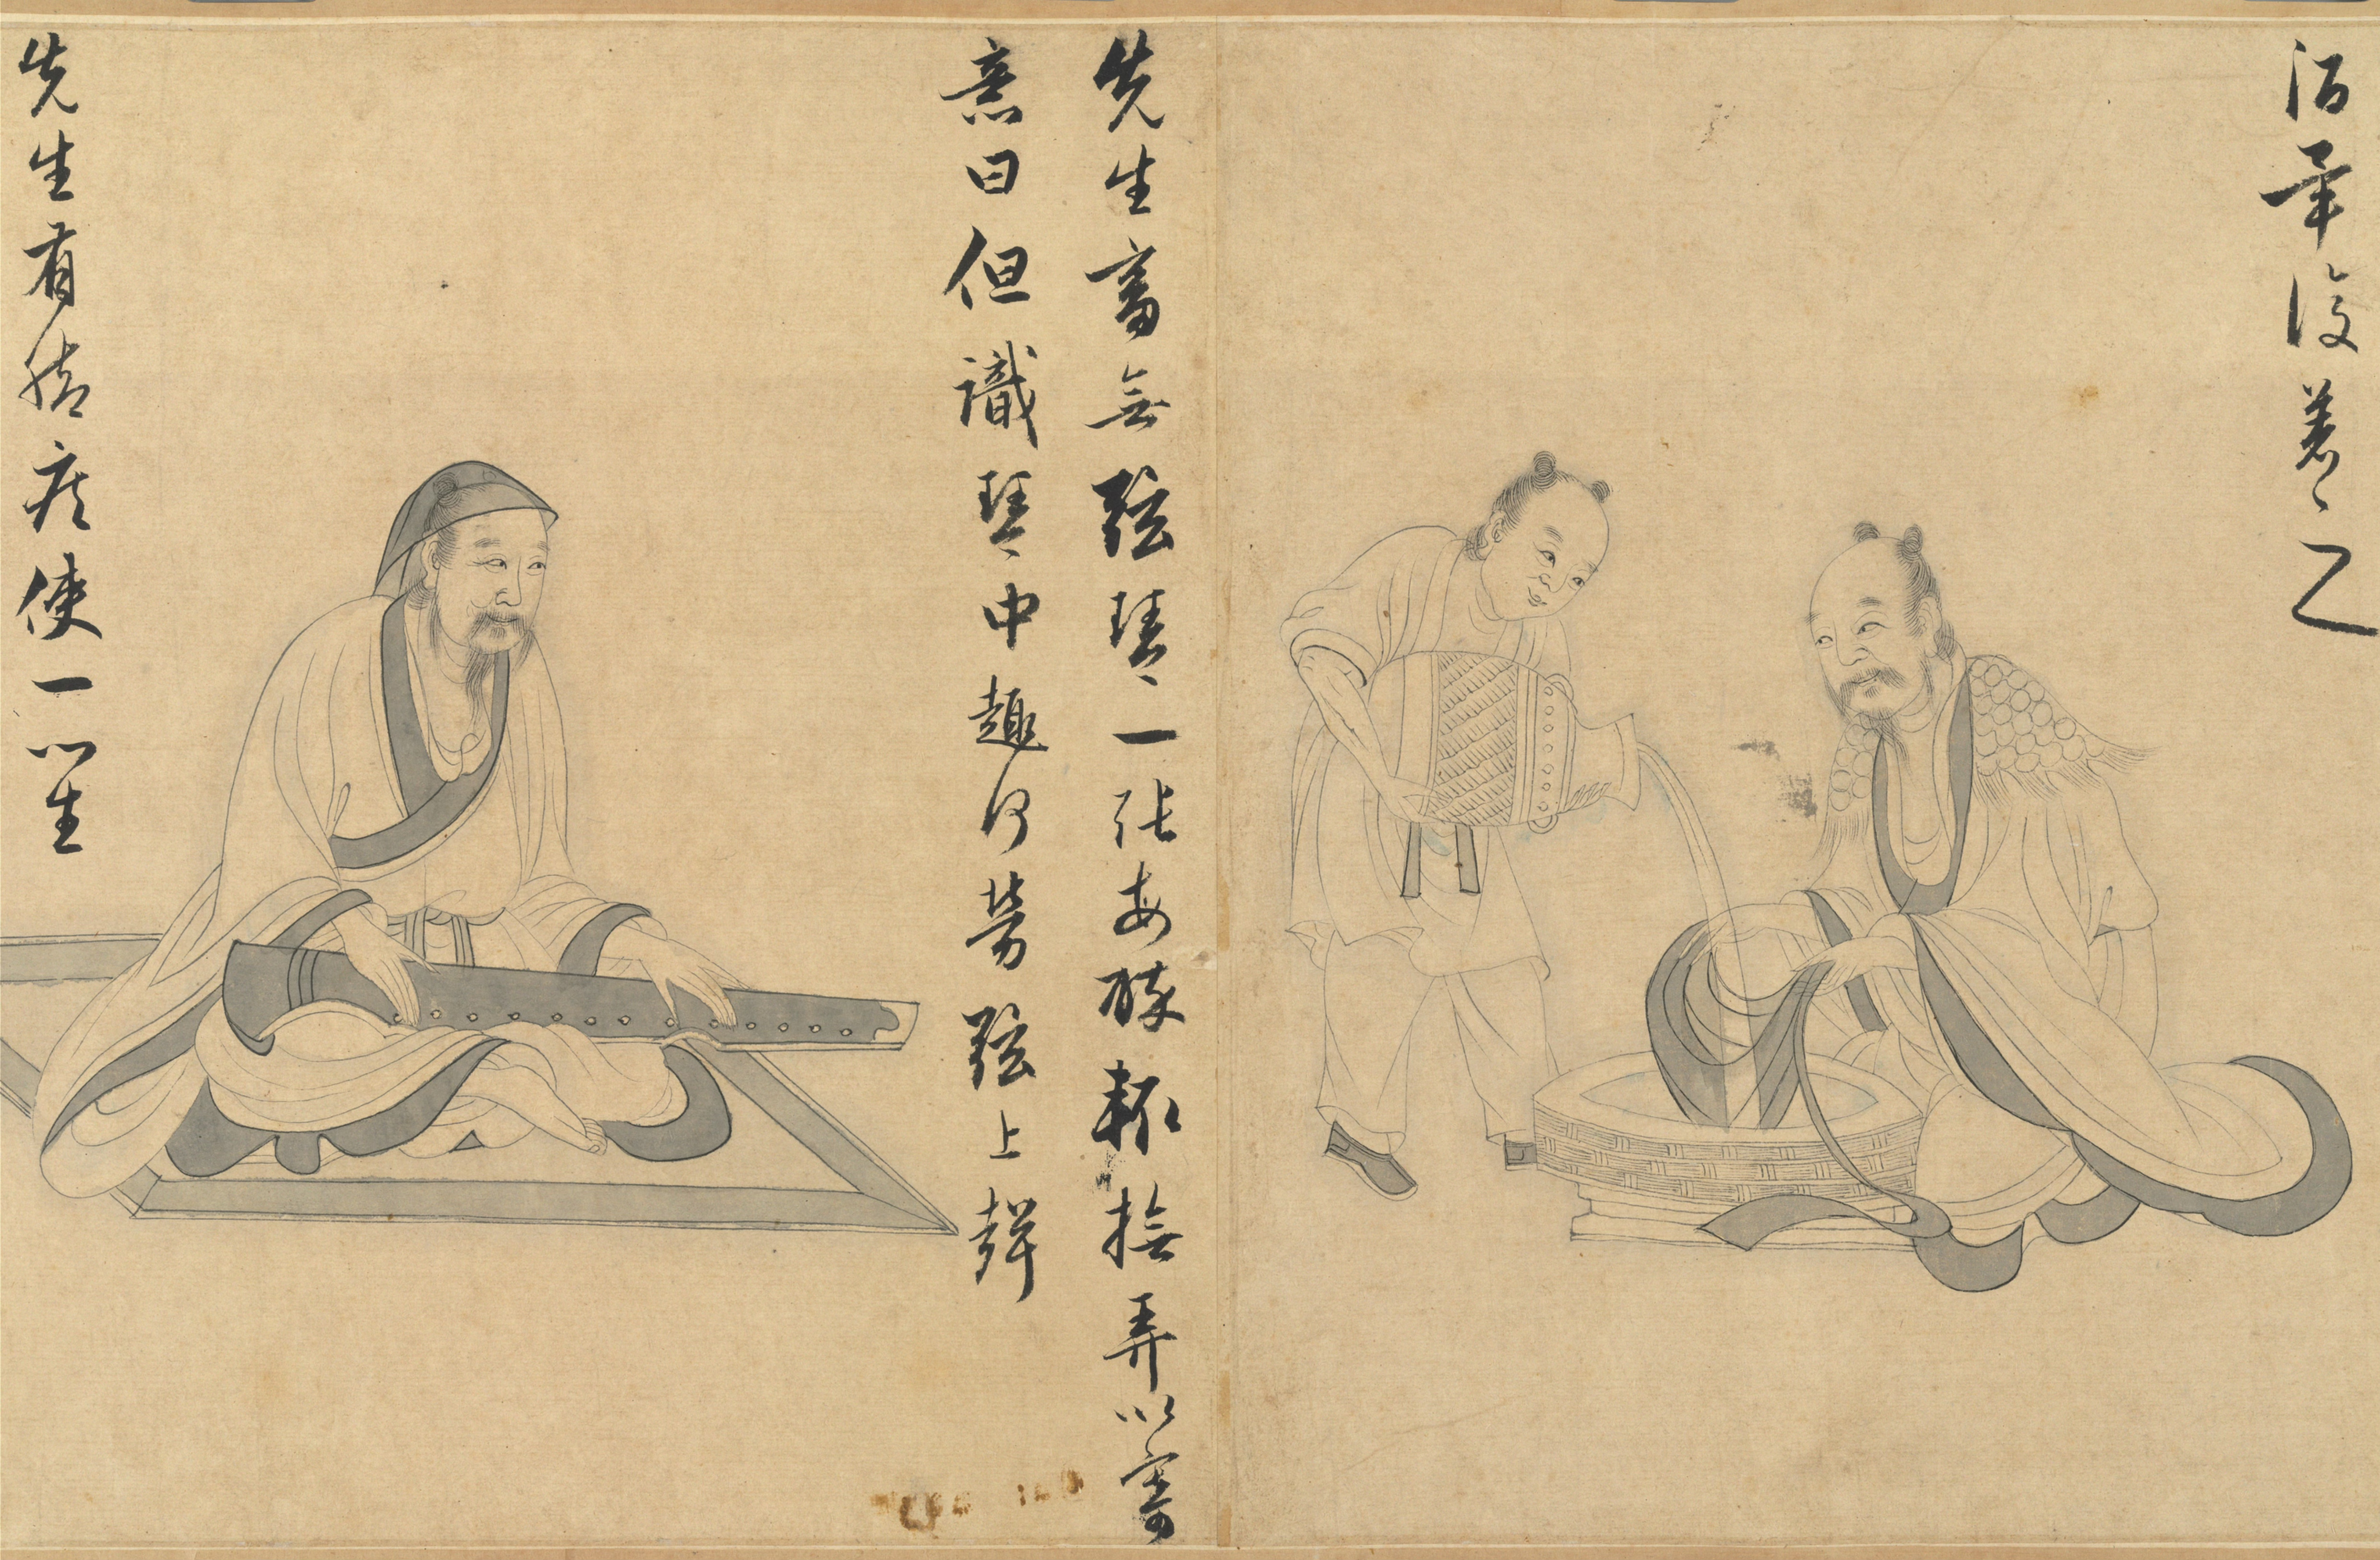 酒畢復著之
先生畜無弦琴一張每醉輒撫弄以寄
意曰但識琴中趣何勞弦上聲
先生有脚疾使一門生